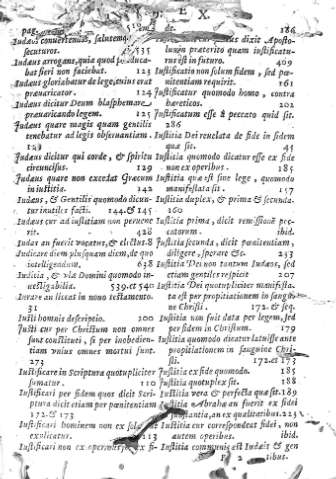 pag.
X.
186
Iudaus convertendus, salutemq́
securos. 535
Iudaus arrogans, quia quod
bat fieri non faciebat. 123
Iudaus gloriabatur de lege, cuius erat
prævaricator. 124
Iudaus dicitur Deum blasphemare
prævaricando legem. 125
Iudaus quare magis quam gentilis
tenebatur ad legis observantiam.
129
Iudaus dicitur qui corde, & spiritu
circuncisus. 129
Iudaus quare non excedat Græcum
in iustitia. 142
Iudaus, & Gentilis quomodo dicun-
tur inutiles facti. 144. & 145
Iudaus cur ad iustitiam non pervene
rit. 428
Iudæi an fuerit vocatus, & electus. 8
Iudicare diem plusquam diem, de quo
intelligendum. 638
Iudicia, & viæ Domini quomodo in-
vestigabilia. 539. et 540
Iurare an liceat in novo testamento.
31
Iusti hominis descriptio. 100
Iusti cur per Christum non omnes
sunt constituti, si per inobedien-
tiam unius omnes mortui sunt.
273
Iustificare in Scriptura quotupliciter
sumatur. 110
Iustificari per fidem quos dicit Scri-
ptura dicit etiam per pænitentiam
172. & 173
Iustificari hominem non ex sola
explicatur. 213
Iustificari non ex operibus, ex fi-
dixit Aposto-
lus in praterito quam iustificatu-
rus est in futuro. 409
Iustificatio non solum fidem, sed pœ-
nitentiam requirit. 161
Iustificatur quomodo homo, contra
hæreticos. 202
Iustificatum esse à peccato quid sit.
286
Iustitia Dei revelata de fide in fidem
quæ sit. 45
Iustitia quomodo dicatur esse ex fide
non ex operibus. 185
Iustitia quæ est sine lege, quomodo
manifestata sit. 157
Iustitia duplex, & prima & secunda.
160
Iustitia prima, dicit remissionē pec-
catorum. ibid.
Iustitia secunda, dicit pœnitentiam,
diligere, sperare &c. 233
Iustitia Dei non tantum Iudæos, sed
etiam gentiles respicit 207
Iustitia Dei quotupliciter manifesta-
ta est per propitiationem in sangui-
ne Christi. 172. & seq.
Iustitia non fuit data per legem, sed
per fidem in Christum. 179
Iustitia quomodo dicatur latuisse ante
propitiationem in sanguine Chri-
sti. 172. et 173
Iustitia ex fide quomodo. 185
Iustitia quotuplex sit. 188
Iustitia vera & perfecta quæ sit. 189
Iustitia Abrahæ an fuerit ex fidei
substantia, an ex qualitatibus. 225
Iustitia cur correspondet fidei, non
autem operibus. ibid.
Iustitia communis est Iudæis & gen
tibus.